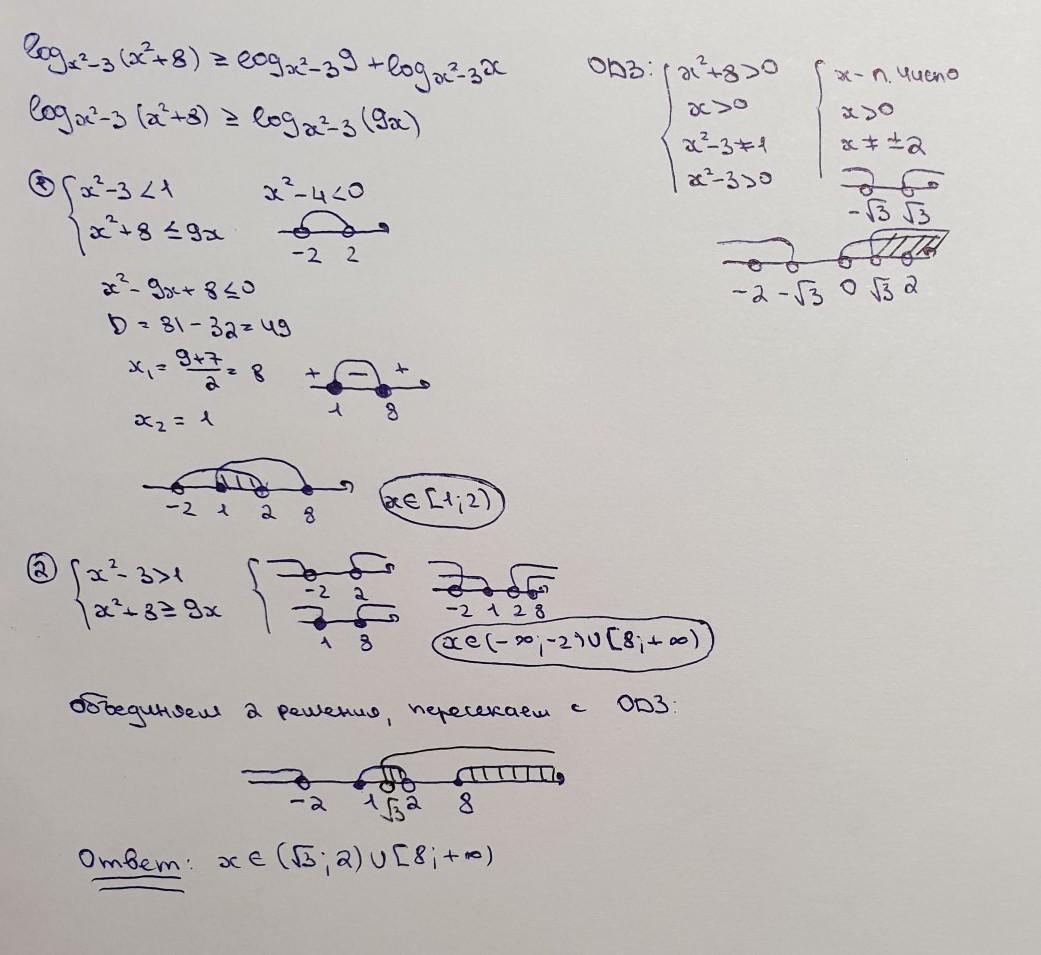 log_{x²-3}(x²+8) ≥ log_{x²-3}9 + log_{x²-3}x
log_{x²-3}(x²+8) ≥ log_{x²-3}(9x)
ОДЗ: { x²+8>0 { x - л. число
x>0 x>0
x²-3≠1 x ≠ ±2
x²-3>0
-√3 √3
-2 -√3 0 √3 2
① { x²-3<1 x²-4<0
x²+8 ≤ 9x
-2 2
x²-9x+8≤0
D = 81-32=49
x₁ = (9+7)/2 = 8 + − +
1 8
x₂ = 1
-2 1 2 8 x∈[1;2)
② { x²-3>1 { -2 2
x²+8≥9x 1 8
-2 1 2 8
x∈(-∞;-2)∪[8;+∞)
Объединяем 2 решения, пересекаем с ОДЗ:
-2 1 √3 2 8
Ответ: x∈(√3;2)∪[8;+∞)